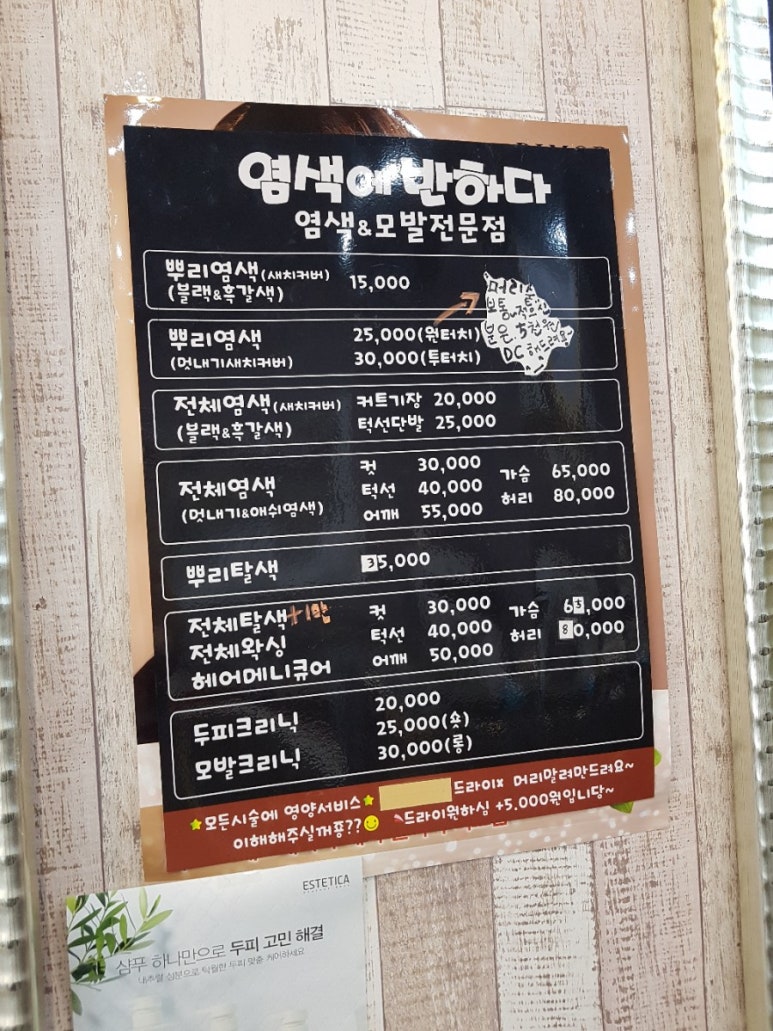 염색에 반하다
염색&모발전문점
뿌리염색(새치커버) 15,000
(블랙&흑갈색)
머리
보통~적
분은 5천원
DC 해드려욤
뿌리염색 25,000(원터치)
(멋내기새치커버) 30,000(투터치)
전체염색(새치커버) 커트기장 20,000
(블랙&흑갈색) 턱선단발 25,000
전체염색
(멋내기&애쉬염색)
컷 30,000 가슴 65,000
턱선 40,000 허리 80,000
어깨 55,000
뿌리탈색 35,000
전체탈색+1만
전체왁싱
헤어메니큐어
컷 30,000 가슴 63,000
턱선 40,000 허리 80,000
어깨 50,000
두피크리닉
모발크리닉
20,000
25,000(숏)
30,000(롱)
모든시술에 영양서비스 드라이x 머리말려만드려요~
이해해주실꺼죵?? 드라이원하심 +5.000원입니당~
ESTETICA
샴푸 하나만으로 두피 고민 해결
내추럴 성분으로 탁월한 두피 맞춤 케어하세요